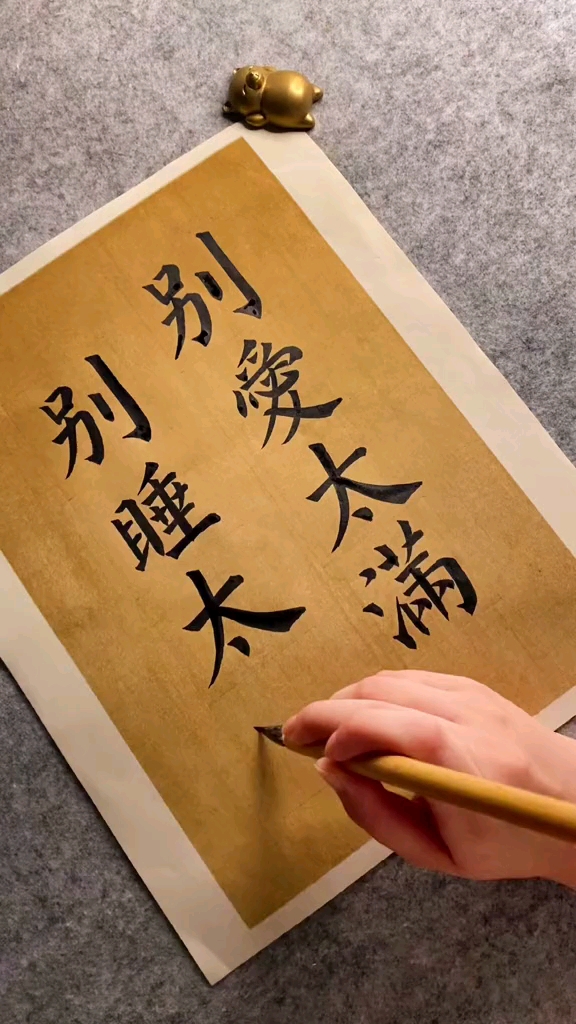 别愛太满
别睡太